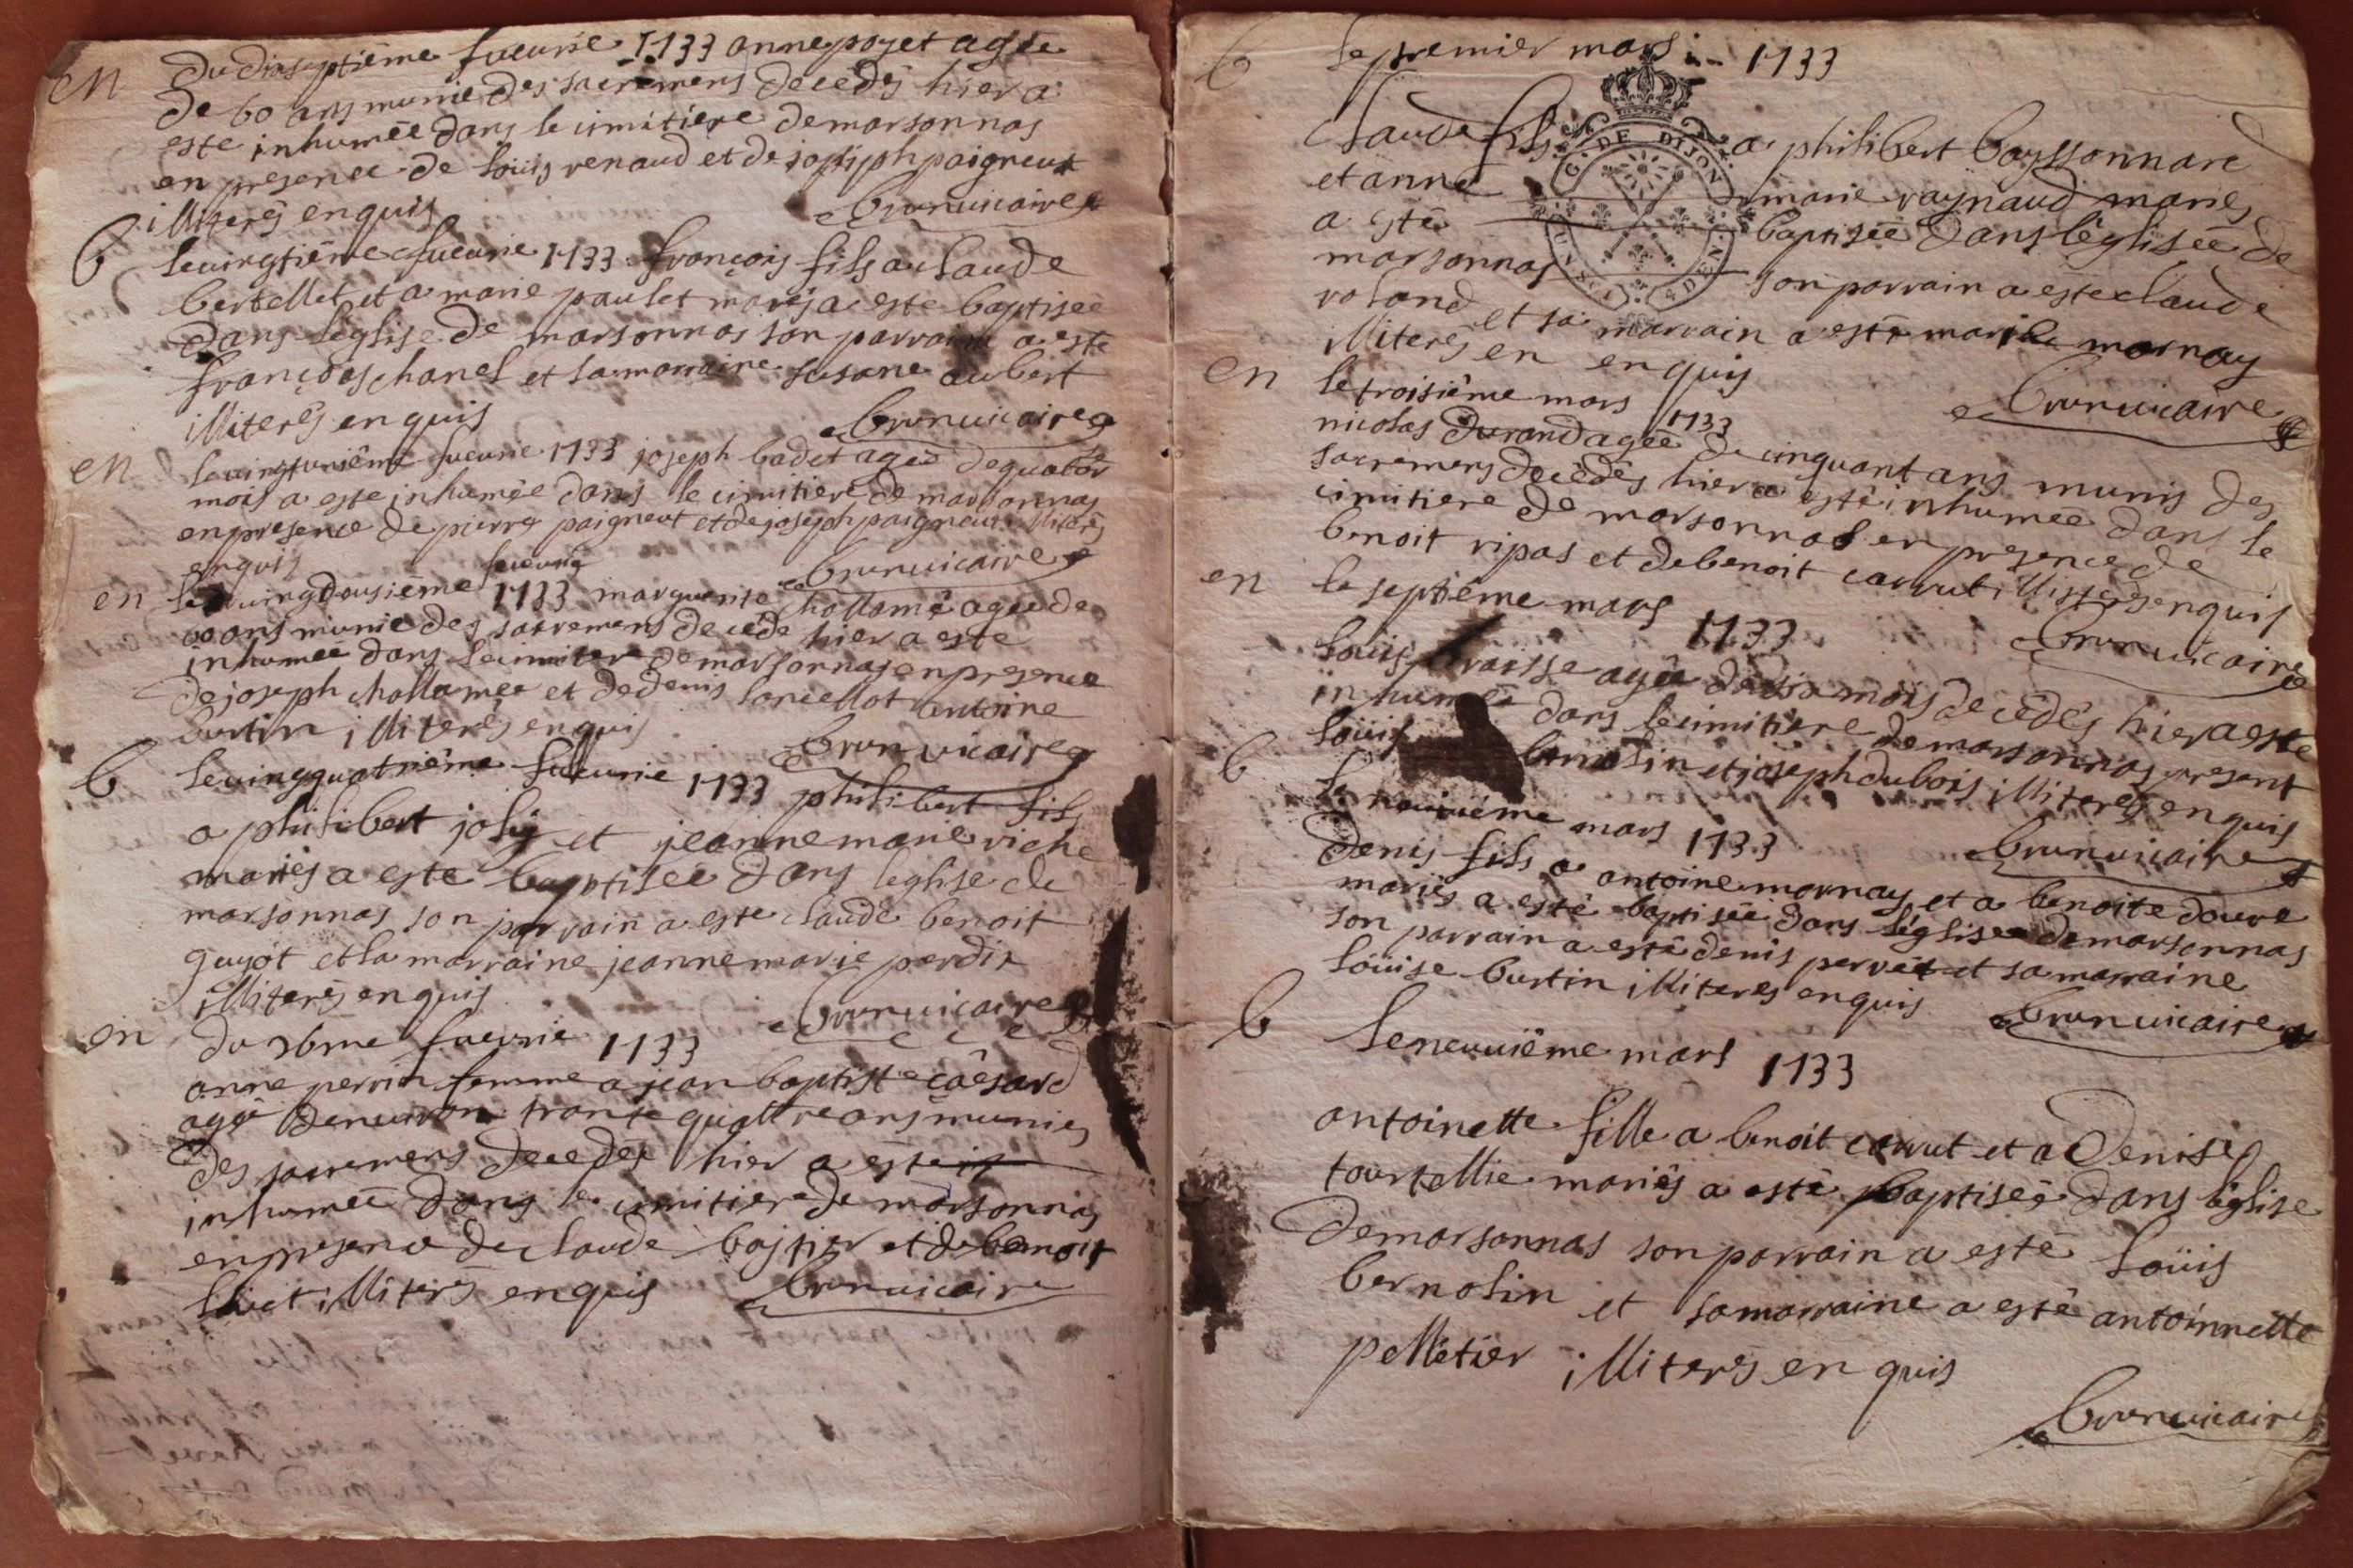 en
du dixseptiéme fueurie 1733 anne poget agée
de 60 ans munie des sacremens decedés hier a
esté inhumée dans le cimitiere de marsonnas
en presence de loüis renaud et de joseph paigneut
illiterés enquis brun uicaire
b
le uingtiéme fueurie 1733 françois fils a claude
bertellet et a marie paulet mariés a esté baptisée
dans léglise de marsonnas son parrain a esté
françois chanel et la marraine susane aubert
illiterés enquis brun uicaire
en
le uingtuniéme fueurie 1733 joseph badet agée de quator
mois a esté inhumée dans le cimitiere de marsonnas
en presence de pierre paigneut et de joseph paigneut illiterés
enquis brun uicaire
en
le uingdousiéme fueurie 1733 marguerite chollamé agée de
60 ans munie des sacremens decede hier a esté
inhumée dans le cimitere de marsonnas en presence
de joseph chollamée et de denis lancellot antoine
burtin illiterés enquis
brun uicaire
b
le uingquatriéme fueurie 1733 philibert fils
a philibert joly et jeanne marie viche
mariés a esté bapptisée dans léglise de
marsonnas son parrain a esté claude benoit
guyot et la marraine jeanne marie perdix
illiterés enquis
brun uicaire
en
du 26me fueurie 1733
anne perrin femme a jean baptiste caésard
agé denuiron trante quattre ans munies
des sacremens decedés hier a esté
inhumée dans le cimitiere de marsonnas
en presence de claude et de benoit
illiterés enquis brun uicaire
b
le premier mars 1733
G. DE DIJON
claude fils a philibert boyssonnard
et anne marie raynaud mariés
a esté baptisée dans léglisée de
marsonnas son parrain a esté claude
roland et sa marrain a esté marie mornay
illiterés en enquis
brun uicaire
en
le troisiéme mars 1733
nicolas durand agée de cinquant ans munis des
sacremens decedés hier a esté inhumée dans le
cimitiere de marsonnas en presence de
benoit ripas et de benoit carrut illiterés enquis
brun uicaire
en
le septiéme mars 1733
loüis agée de six mois decedés hier a esté
inhumée dans le cimitiere de marsonnas present
loüis bernolin et joseph dubois illiterés enquis
brun uicaire
b
le neuuiéme mars 1733
denis fils a antoine mornay et a benoite douve
mariés a esté baptisée dans léglise de marsonnas
son parrain a esté denis pervet et sa marraine
loüise burtin illiterés enquis
brun uicaire
b
le neuuiéme mars 1733
antoinette fille a benoit carrut et a denise
tourtellie mariés a esté baptiseé dans léglise
de marsonnas son parrain a esté loüis
bernolin et sa marraine a esté antoinnette
pelletier illiterés en quis
brun uicaire